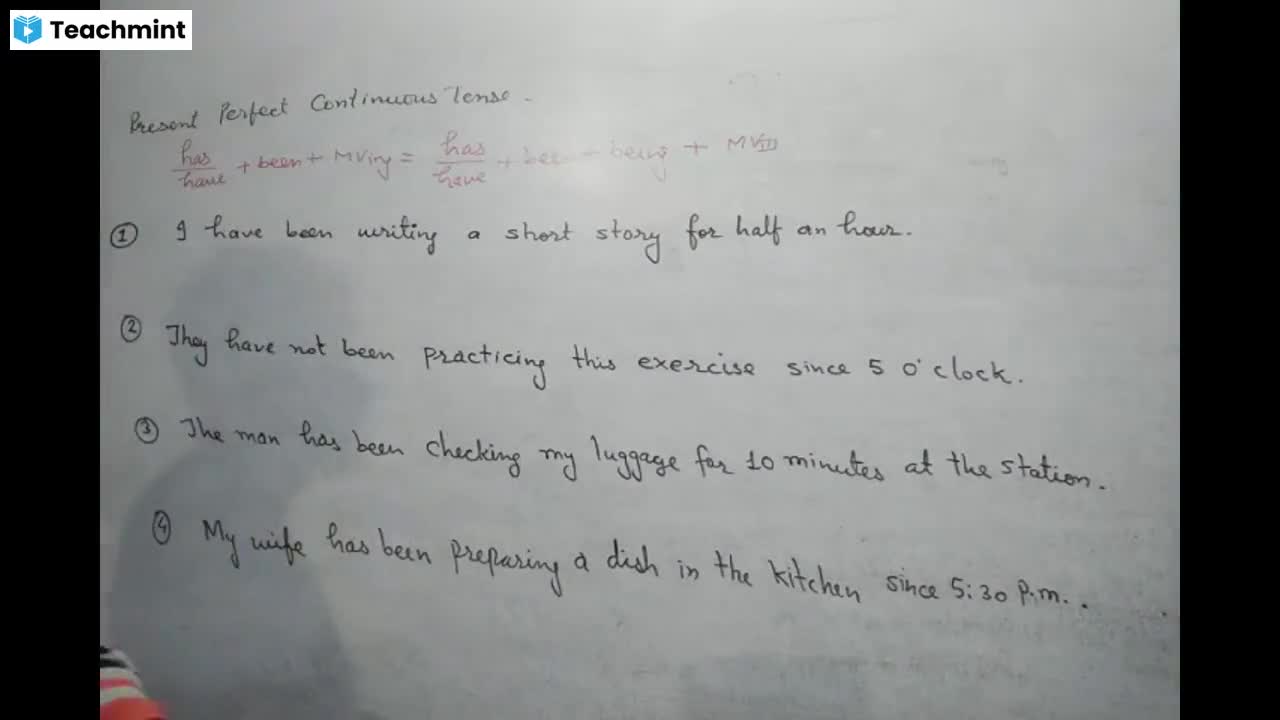 Teachmint
Present Perfect Continuous Tense.
has/have + been + MVing = has/have + been + being + MVIII
① I have been writing a short story for half an hour.
② They have not been practicing this exercise since 5 o'clock.
③ The man has been checking my luggage for 10 minutes at the station.
④ My wife has been preparing a dish in the kitchen since 5:30 P.m..